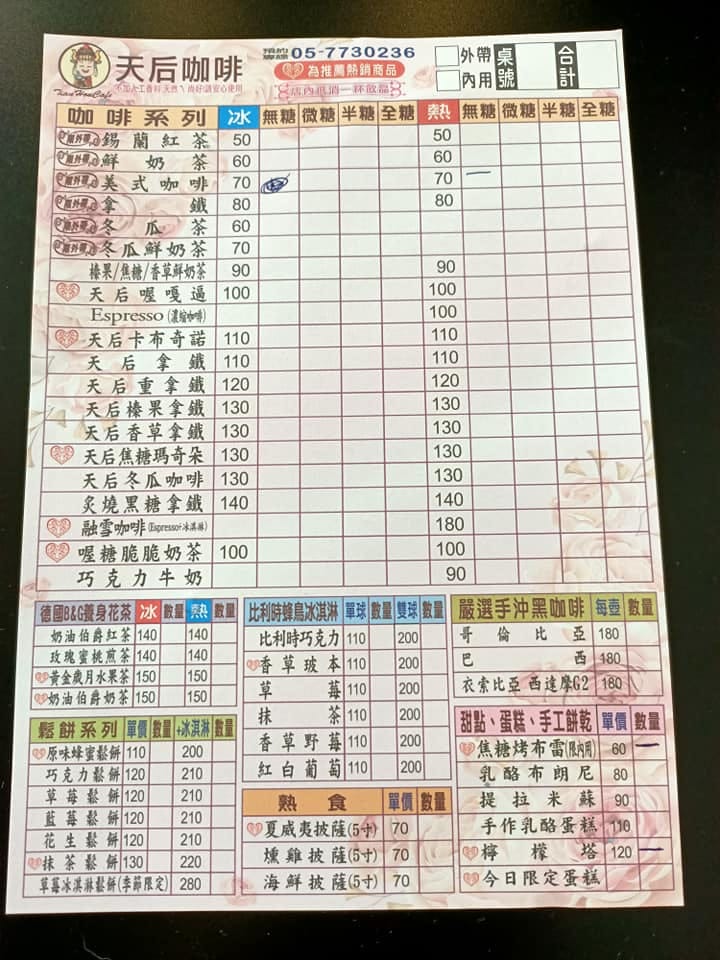 天后咖啡 預約專線 05-7730236 外帶 桌號 合計
Tian Hou Cafe 為推薦熱銷商品 內用
店內低消一杯飲品
咖啡系列 冰 無糖 微糖 半糖 全糖 熱 無糖 微糖 半糖 全糖
錫蘭紅茶 50 50
鮮奶茶 60 60
美式咖啡 70 70
拿鐵 80 80
冬瓜茶 60
冬瓜鮮奶茶 70
榛果/焦糖/香草鮮奶茶 90 90
天后喔嘎逼 100 100
Espresso(濃縮咖啡) 100
天后卡布奇諾 110 110
天后拿鐵 110 110
天后重拿鐵 120 120
天后榛果拿鐵 130 130
天后香草拿鐵 130 130
天后焦糖瑪奇朵 130 130
天后冬瓜咖啡 130 130
炙燒黑糖拿鐵 140 140
融雪咖啡(Espresso+冰淇淋) 180
喔糖脆脆奶茶 100 100
巧克力牛奶 90
德國B&G養身花茶 冰 數量 熱 數量
奶油伯爵紅茶 140 140
玫瑰蜜桃煎茶 140 140
黃金歲月水果茶 150 150
奶油伯爵奶茶 150 150
鬆餅系列 單價 數量 +冰淇淋 數量
原味蜂蜜鬆餅 110 200
巧克力鬆餅 120 210
草莓鬆餅 120 210
藍莓鬆餅 120 210
花生鬆餅 120 210
抹茶鬆餅 130 220
草莓冰淇淋鬆餅(季節限定) 280
比利時蜂鳥冰淇淋 單球 數量 雙球 數量
比利時巧克力 110 200
香草玻本 110 200
草莓 110 200
抹茶 110 200
香草野莓 110 200
紅白葡萄 110 200
熱食 單價 數量
夏威夷披薩(5寸) 70
燻雞披薩(5寸) 70
海鮮披薩(5寸) 70
嚴選手沖黑咖啡 每壺 數量
哥倫比亞 180
巴西 180
衣索比亞 西達摩G2 180
甜點、蛋糕、手工餅乾 單價 數量
焦糖烤布雷(限內用) 60
乳酪布朗尼 80
提拉米蘇 90
手作乳酪蛋糕 110
檸檬塔 120
今日限定蛋糕